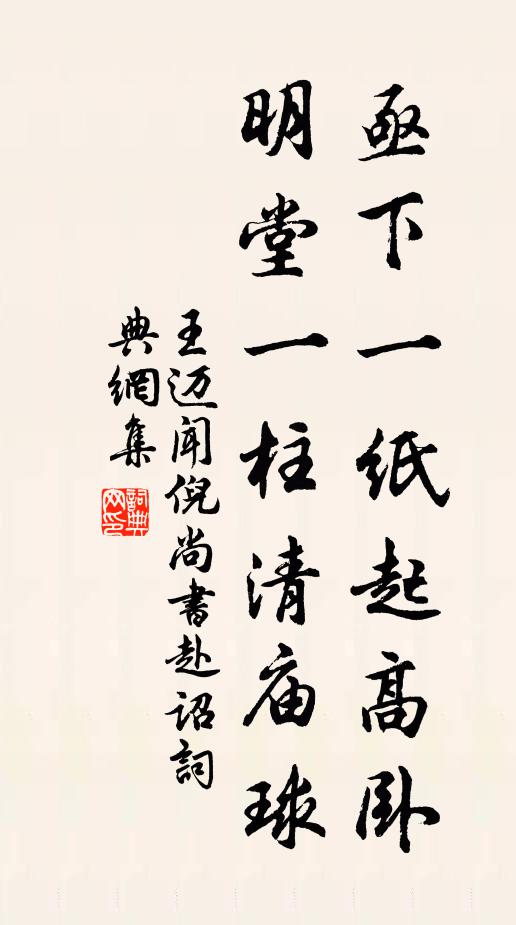 亟下一紙起高卧
明堂一柱清庙球
王迈闻倪尚書赴诏詞
典網集
詞典网印